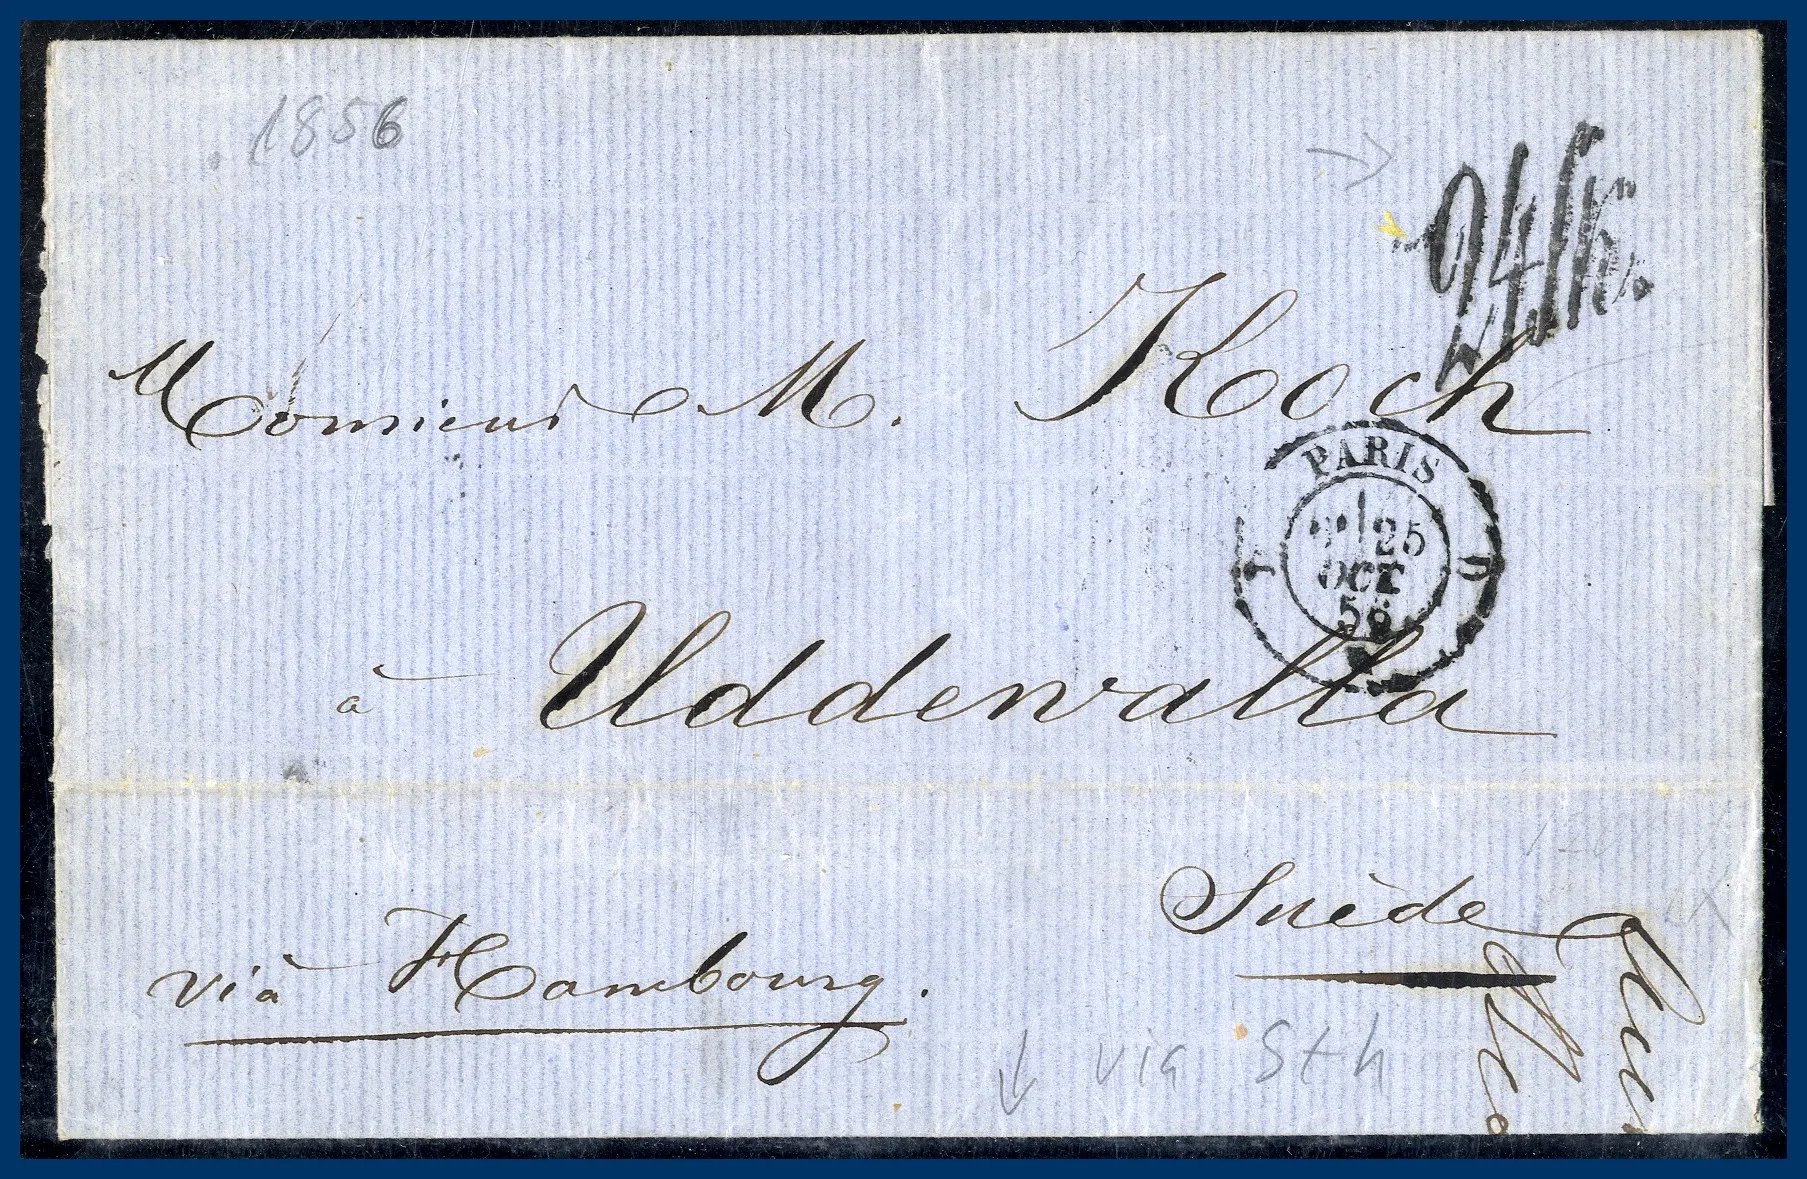 1856
Monsieur M. Koch
PARIS
25
OCT
56
à Uddewalla
Suède
via Hambourg.
via Sth